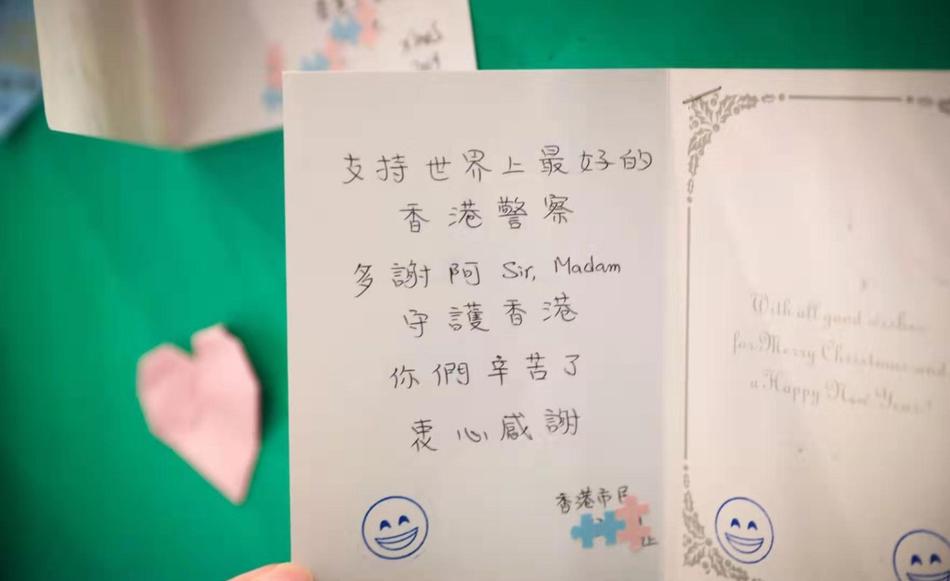 支持世界上最好的
香港警察
多謝阿 Sir, Madam
守護香港
你們辛苦了
衷心感謝
香港市民
上
With all good wishes
for Merry Christmas and
a Happy New Year!